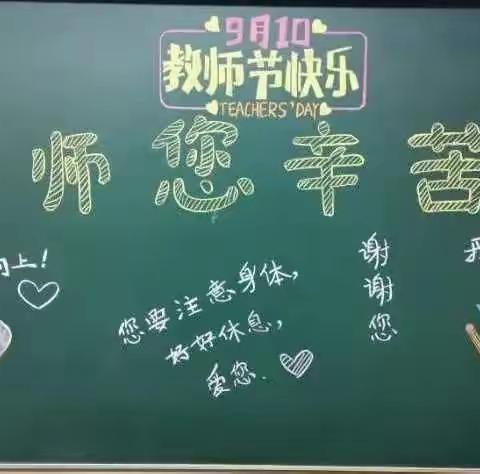 9月10
教师节快乐
TEACHERS' DAY
师您辛苦
向上!
您要注意身体,
好好休息,
爱您.
谢谢您